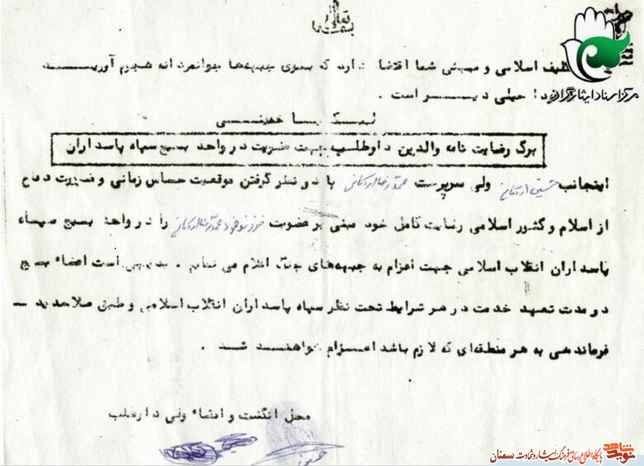 بسمه تعالی
اسلامی و میهنی شما اقتضا دارد که بسوی جبهه‌ها جوانمردانه هجوم آورید
خیلی دیر است .
خمینی
برگ رضایت نامه والدین داوطلب جهت عضویت در واحد بسیج سپاه پاسداران
اینجانب ولی سرپرست با در نظر گرفتن موقعیت حساس زمانی و ضرورت دفاع
از اسلام و کشور اسلامی رضایت کامل خود مبنی بر عضویت را در واحد بسیج سپاه
پاسداران انقلاب اسلامی جهت اعزام به جبهه‌های جنگ اعلام می نمایم . بدیهی است اعضاء بسیج
در مدت تعهد خدمت در هر شرایط تحت نظر سپاه پاسداران انقلاب اسلامی و طبق صلاحدید
فرماندهی به هر منطقه‌ای که لازم باشد اعزام خواهند شد .
محل انگشت و امضاء ولی داوطلب
مرکز اسناد ایثارگران
نوید شاهد پایگاه اطلاع رسانی فرهنگ ایثار و شهادت سمنان